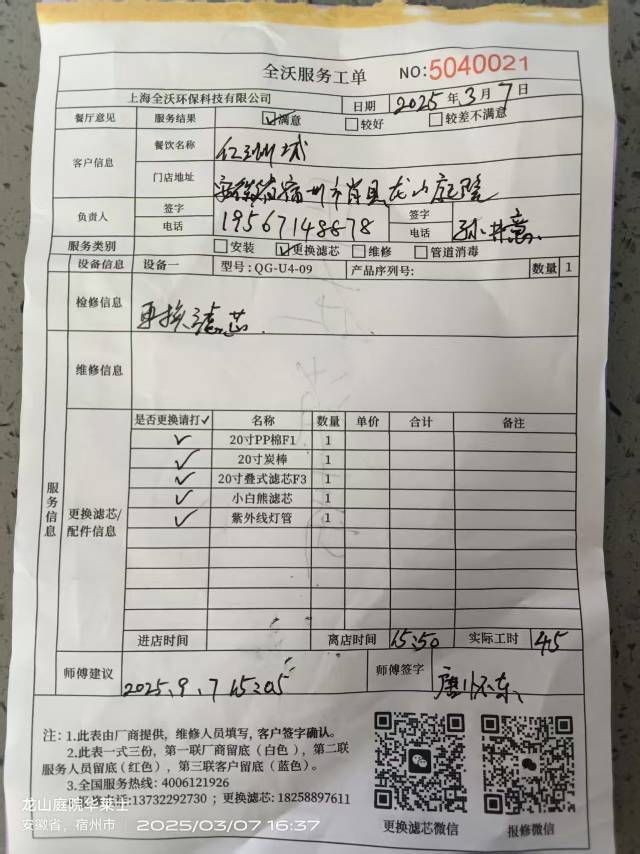 全沃服务工单 NO:5040021
上海全沃环保科技有限公司 日期 2025年3月7日
餐厅意见 服务结果 ☑满意 □较好 □较差不满意
客户信息 餐饮名称
门店地址 安徽省宿州市萧县龙山庭院
负责人 签字 签字
电话 19567148878 电话
服务类别 □安装 ☑更换滤芯 □维修 □管道消毒
设备信息 设备一 型号:QG-U4-09 产品序列号: 数量 1
检修信息 更换滤芯.
维修信息
服务信息
更换滤芯/
配件信息
是否更换请打✓ 名称 数量 单价 合计 备注
✓ 20寸PP棉F1 1
✓ 20寸炭棒 1
✓ 20寸叠式滤芯F3 1
✓ 小白熊滤芯 1
✓ 紫外线灯管 1
进店时间 离店时间 15:50 实际工时 45
师傅建议 2025.9.7 15:05 师傅签字 唐怀东
注:1.此表由厂商提供，维修人员填写,客户签字确认。
2.此表一式三份，第一联厂商留底（白色），第二联
服务人员留底(红色)，第三联客户留底（蓝色）。
3.全国服务热线: 4006121926
13732292730 ；更换滤芯: 18258897611
更换滤芯微信 报修微信
龙山庭院华莱士
安徽省，宿州市 2025/03/07 16:37